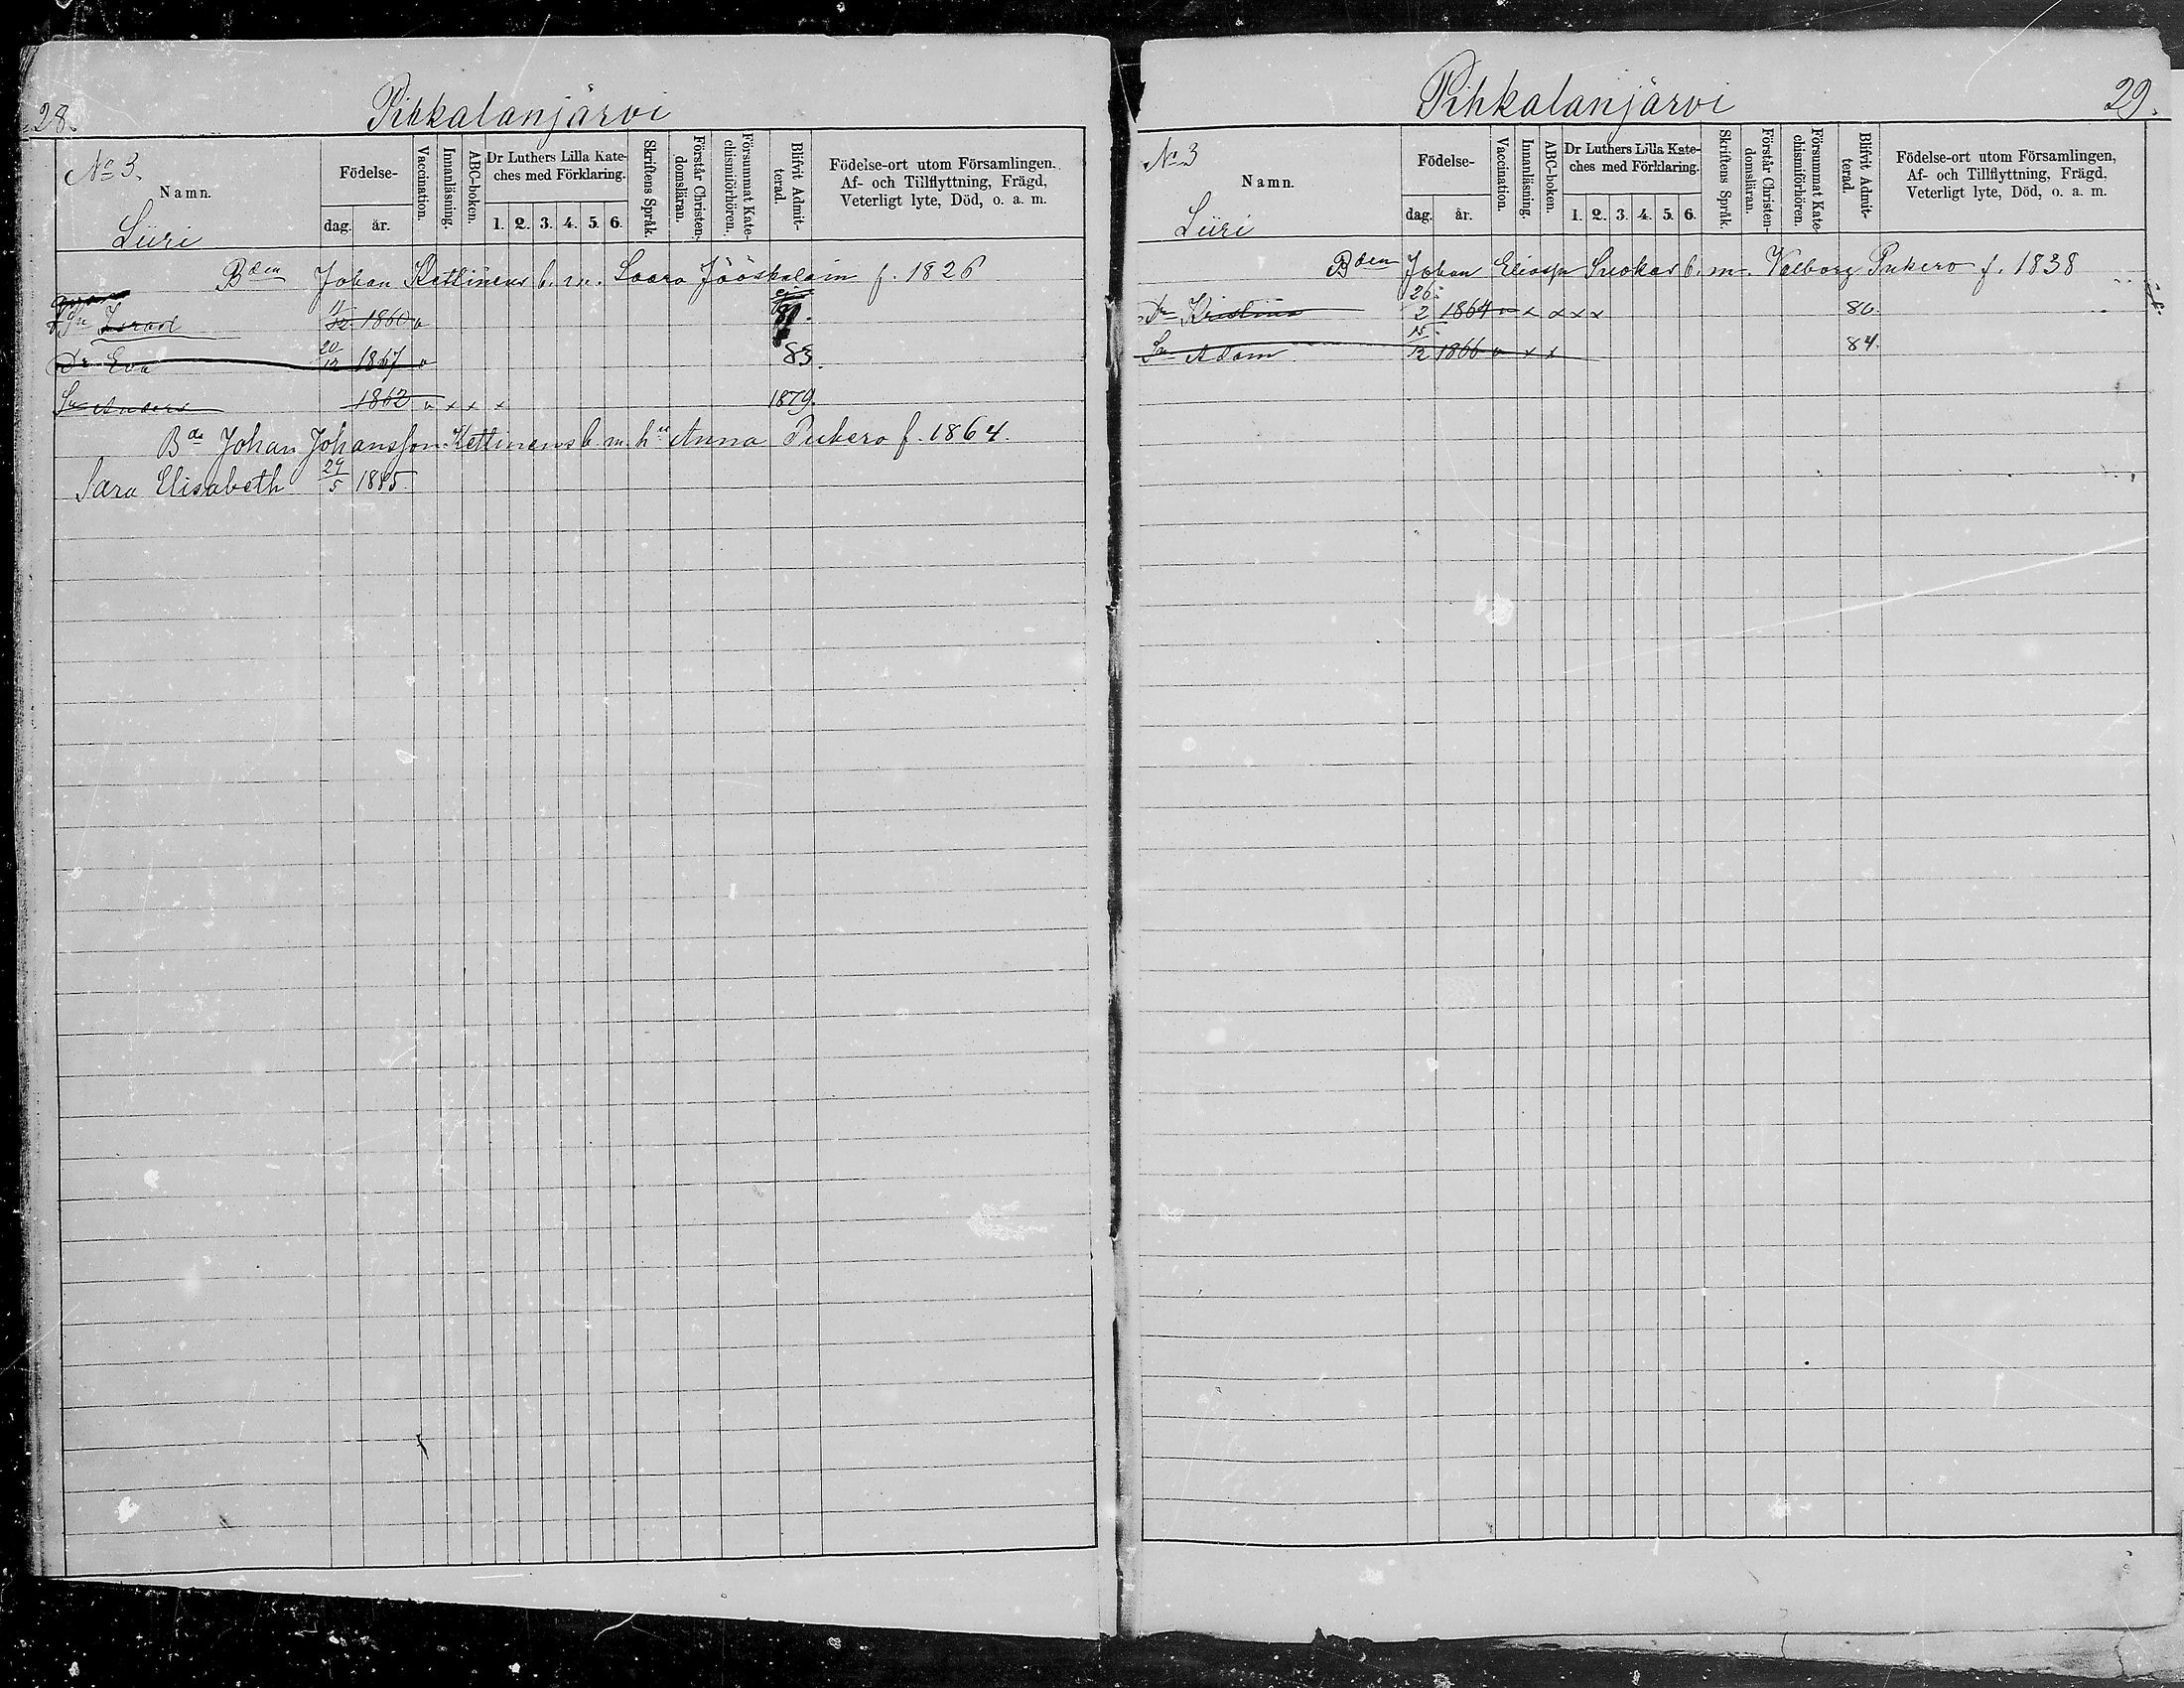 28.
Pihkalanjärvi
No 3.
Namn.
Liiri
Födelse-
dag. år.
Vaccination.
Innanläsning.
ABC-boken.
Dr Luthers Lilla Kate-
ches med Förklaring.
1. 2. 3. 4. 5. 6.
Skriftens Språk.
Förstår Christen-
domsläran.
Försummat Kate-
chismiförhören.
Blifvit Admit-
terad.
Födelse-ort utom Församlingen.
Af- och Tillflyttning, Frägd,
Veterligt lyte, Död, o. a. m.
Bden Johan Kettinens b. m. Saara Jääskelain f. 1826
Sn Israel 1860 v
Dr Eva 20/12 1867 v 83.
Sn Anders 1862 v x x x 1879.
Bde Johan Johansson Kettinens b. m. hu Anna Pukero f. 1864.
Sara Elisabeth 29/5 1885
Pihkalanjärvi
29.
No 3
Namn.
Liiri
Födelse-
dag. år.
Vaccination.
Innanläsning.
ABC-boken.
Dr Luthers Lilla Kate-
ches med Förklaring.
1. 2. 3. 4. 5. 6.
Skriftens Språk.
Förstår Christen-
domsläran.
Försummat Kate-
chismiförhören.
Blifvit Admit-
terad.
Födelse-ort utom Församlingen,
Af- och Tillflyttning, Frägd,
Veterligt lyte, Död, o. a. m.
Bden Johan Eliassn Suokas b. m. Valborg Pukero f. 1838
Dr Kristina 26/2 1864 v x x x x 80.
Sn Adam 15/12 1866 v x x 84.